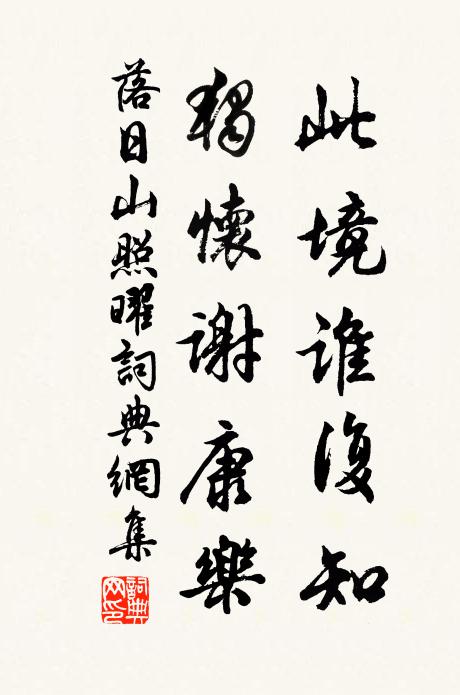 此境誰復知
獨懷謝康樂
落日山照曜詞典網集
詞典
网印